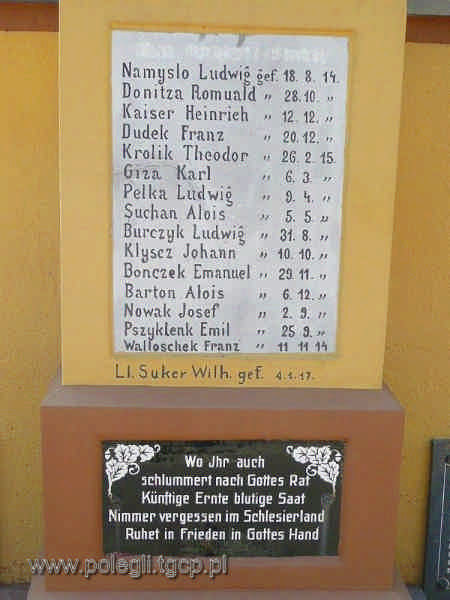 Namyslo Ludwig gef. 18. 8. 14.
Donitza Romuald „ 28.10. „
Kaiser Heinrich „ 12. 12. „
Dudek Franz „ 20.12. „
Krolik Theodor „ 26. 2. 15.
Giza Karl „ 6. 3. „
Pelka Ludwig „ 9. 4. „
Suchan Alois „ 5. 5. „
Burczyk Ludwig „ 31. 8. „
Klyscz Johann „ 10. 10. „
Bonczek Emanuel „ 29. 11. „
Barton Alois „ 6. 12. „
Nowak Josef „ 2. 9. „
Pszyklenk Emil „ 25 9. „
Walloschek Franz „ 11 11 14
Ll. Suker Wilh. gef. 4.1.17.
Wo Jhr auch
schlummert nach Gottes Rat
Künftige Ernte blutige Saat
Nimmer vergessen im Schlesierland
Ruhet in Frieden in Gottes Hand
www.polegli.tgcp.pl